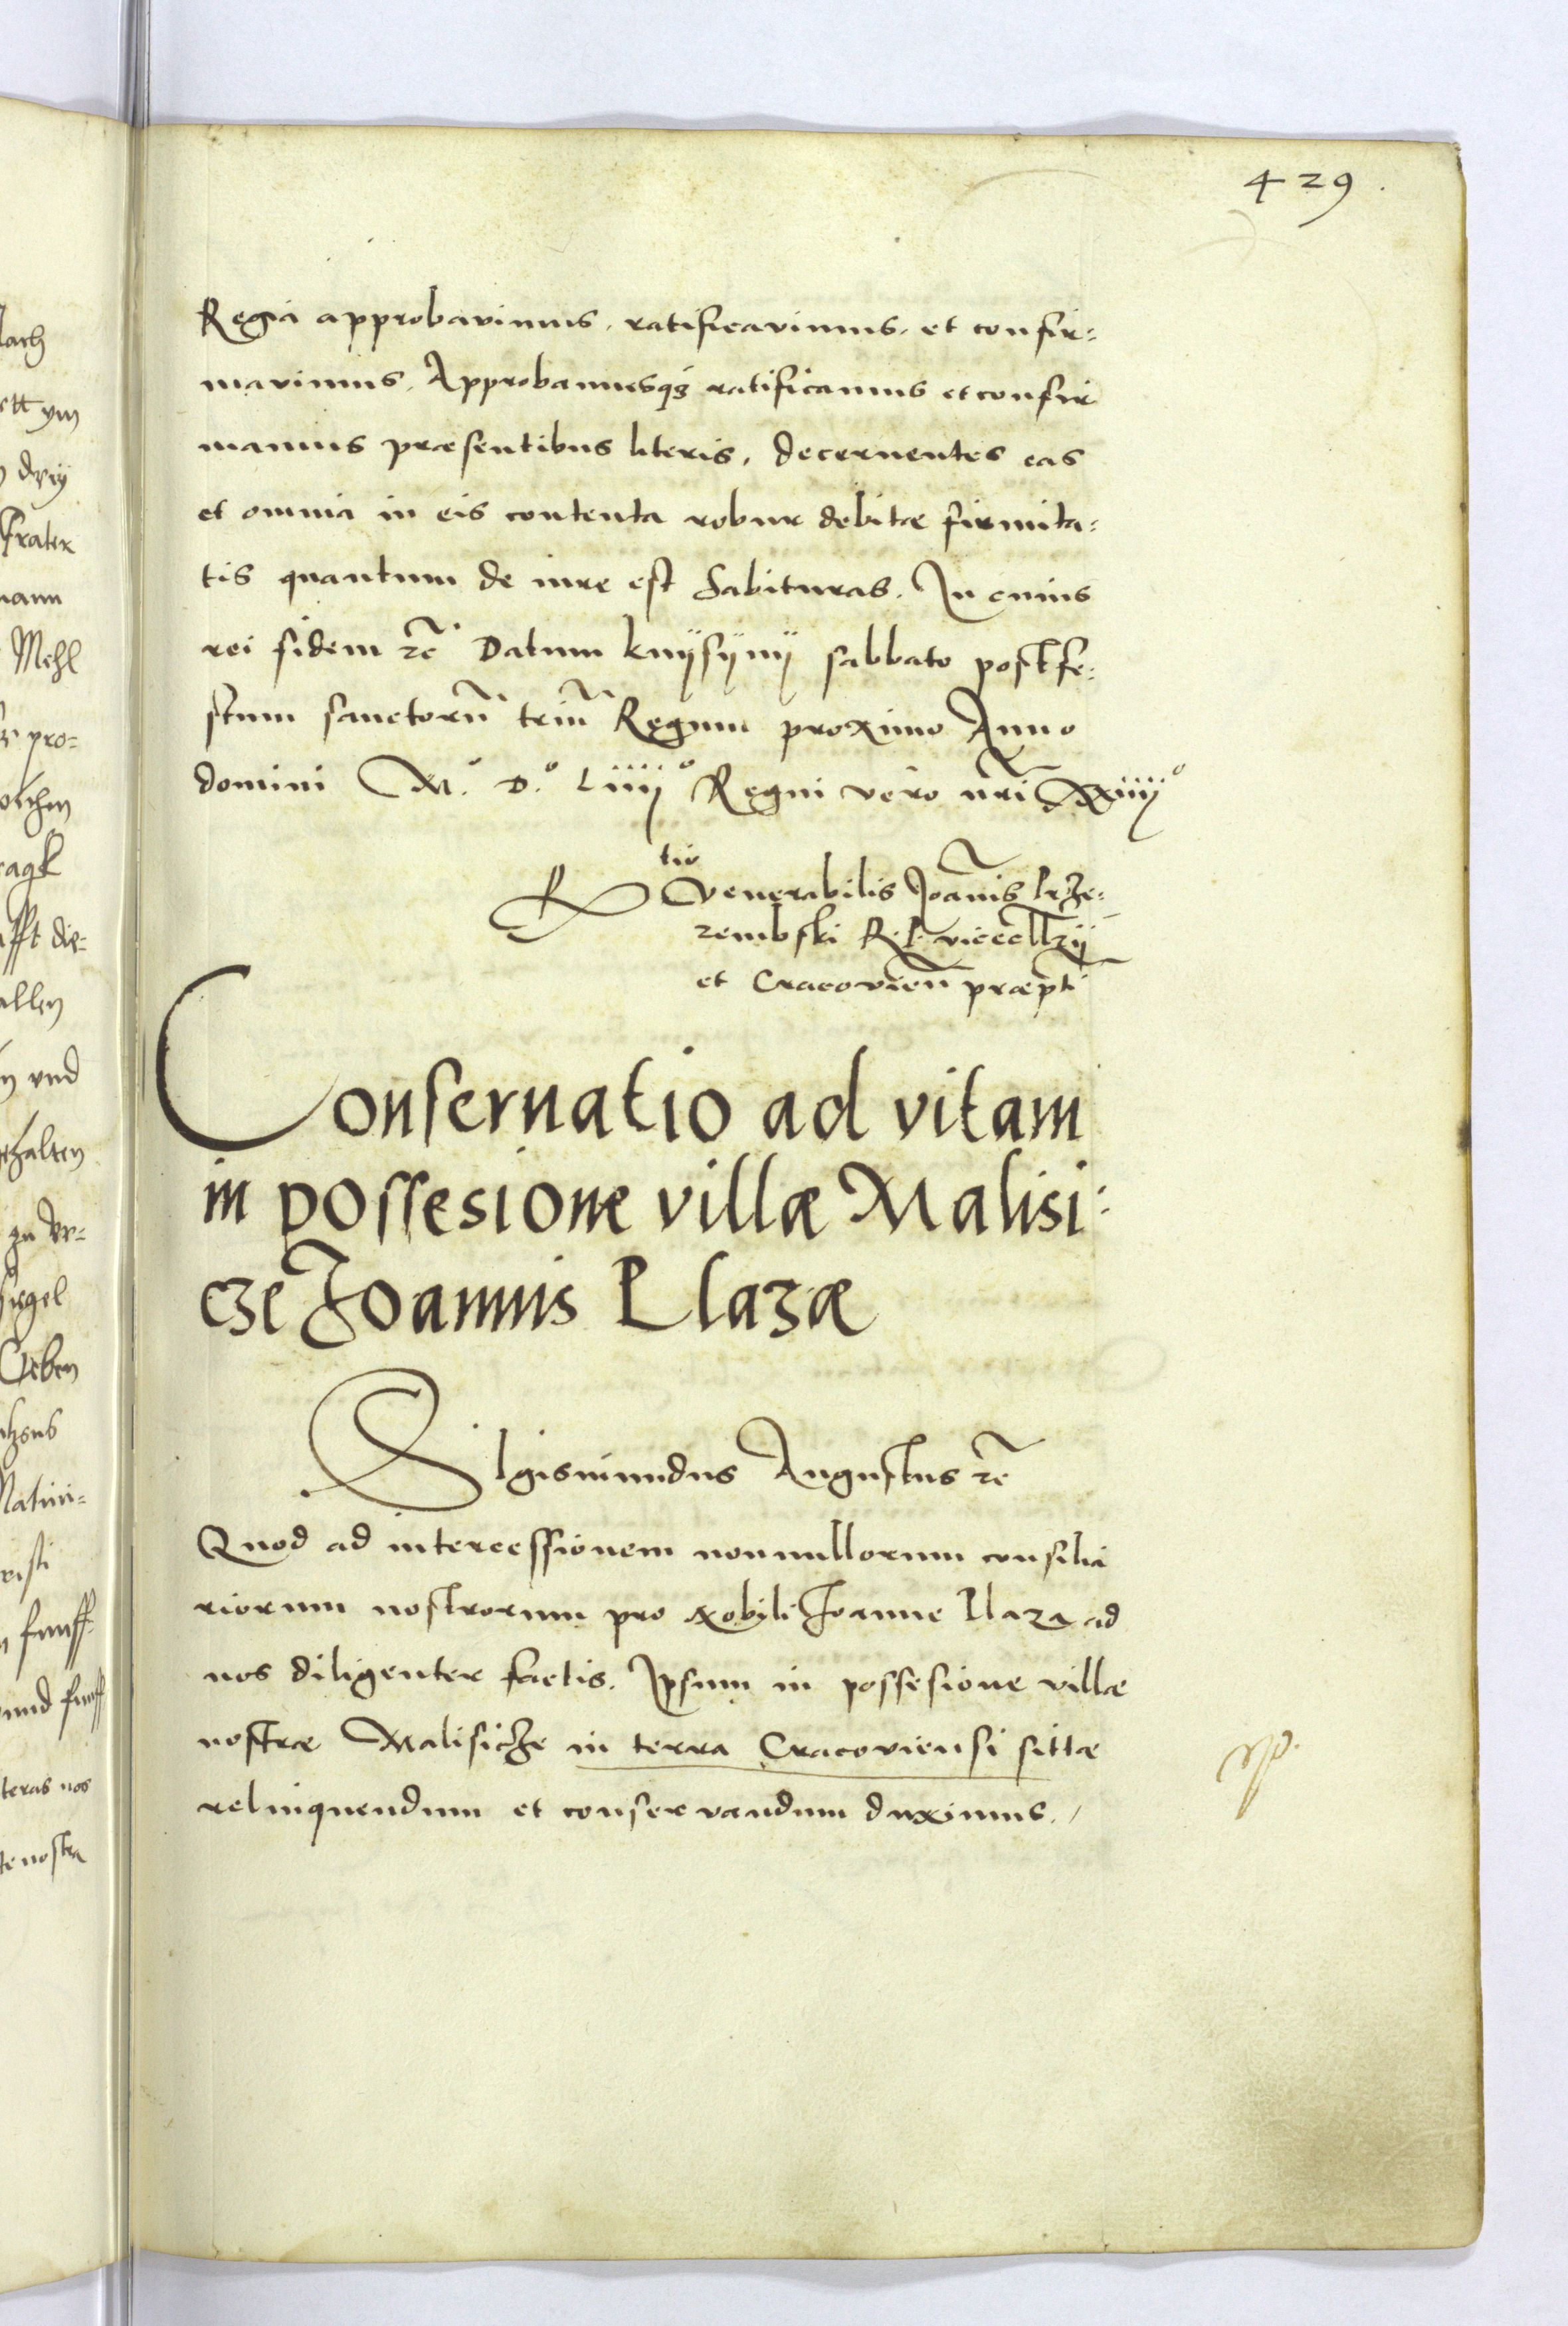 429.
Regia approbavimus, ratificavimus, et confir=
mavimus, Approbamusqꝫ ratificamus et confir
mamus præsentibus literis, decernentes eas
et omnia in eis contenta robur debitæ firmita=
tis quantum de iure est habituras. In cuius
rei fidem etc̃ Datum knÿsÿnÿ sabbato post fe=
stum sanctorũ triũ Regum proximo Anno
domini Mº Dº Liiijº Regni vero nr̃i XXiiijº
Rtio Venerabilis Joãnis Prze=
rembski R. P. vicecllrÿ
et Cracovieñ præpti
Conservatio ad vitam
in possesione villæ Malisi=
cze Joannis Plazæ
Sigismundus Augustus etc̃
Quod ad intercessionem nonnullorum consilia
riorum nostrorum pro Nobili Joanne Plaza ad
nos diligenter factis. Ipsum in possesione villæ
nostræ Malisicze in terra Cracoviensi sittæ
relinquendum et conservandum duximus.
lach
ett ym
drÿ
frater
mann
Mehl
pro=
ragk
afft die=
allen
vnd
gehalten
zu Vr=
siegel
Geben
Natiui=
risti
funff=
vnnd funff
teras nos
te nostra